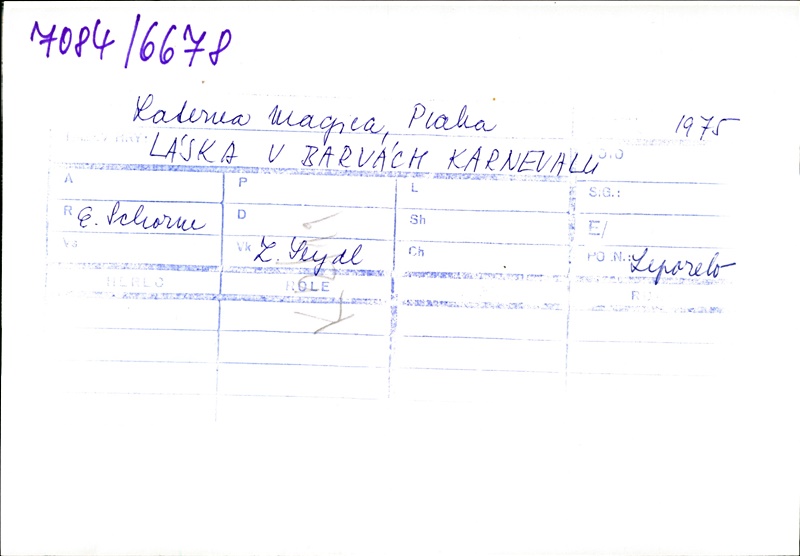 7084/6678
Laterna Magica, Praha 1975
LÁSKA V BARVÁCH KARNEVALU
A P L S.G.:
R E. Schorm D Sh E/
Vs Vk Z. Seydl Ch PO.N.: Leporelo
HEREC ROLE R